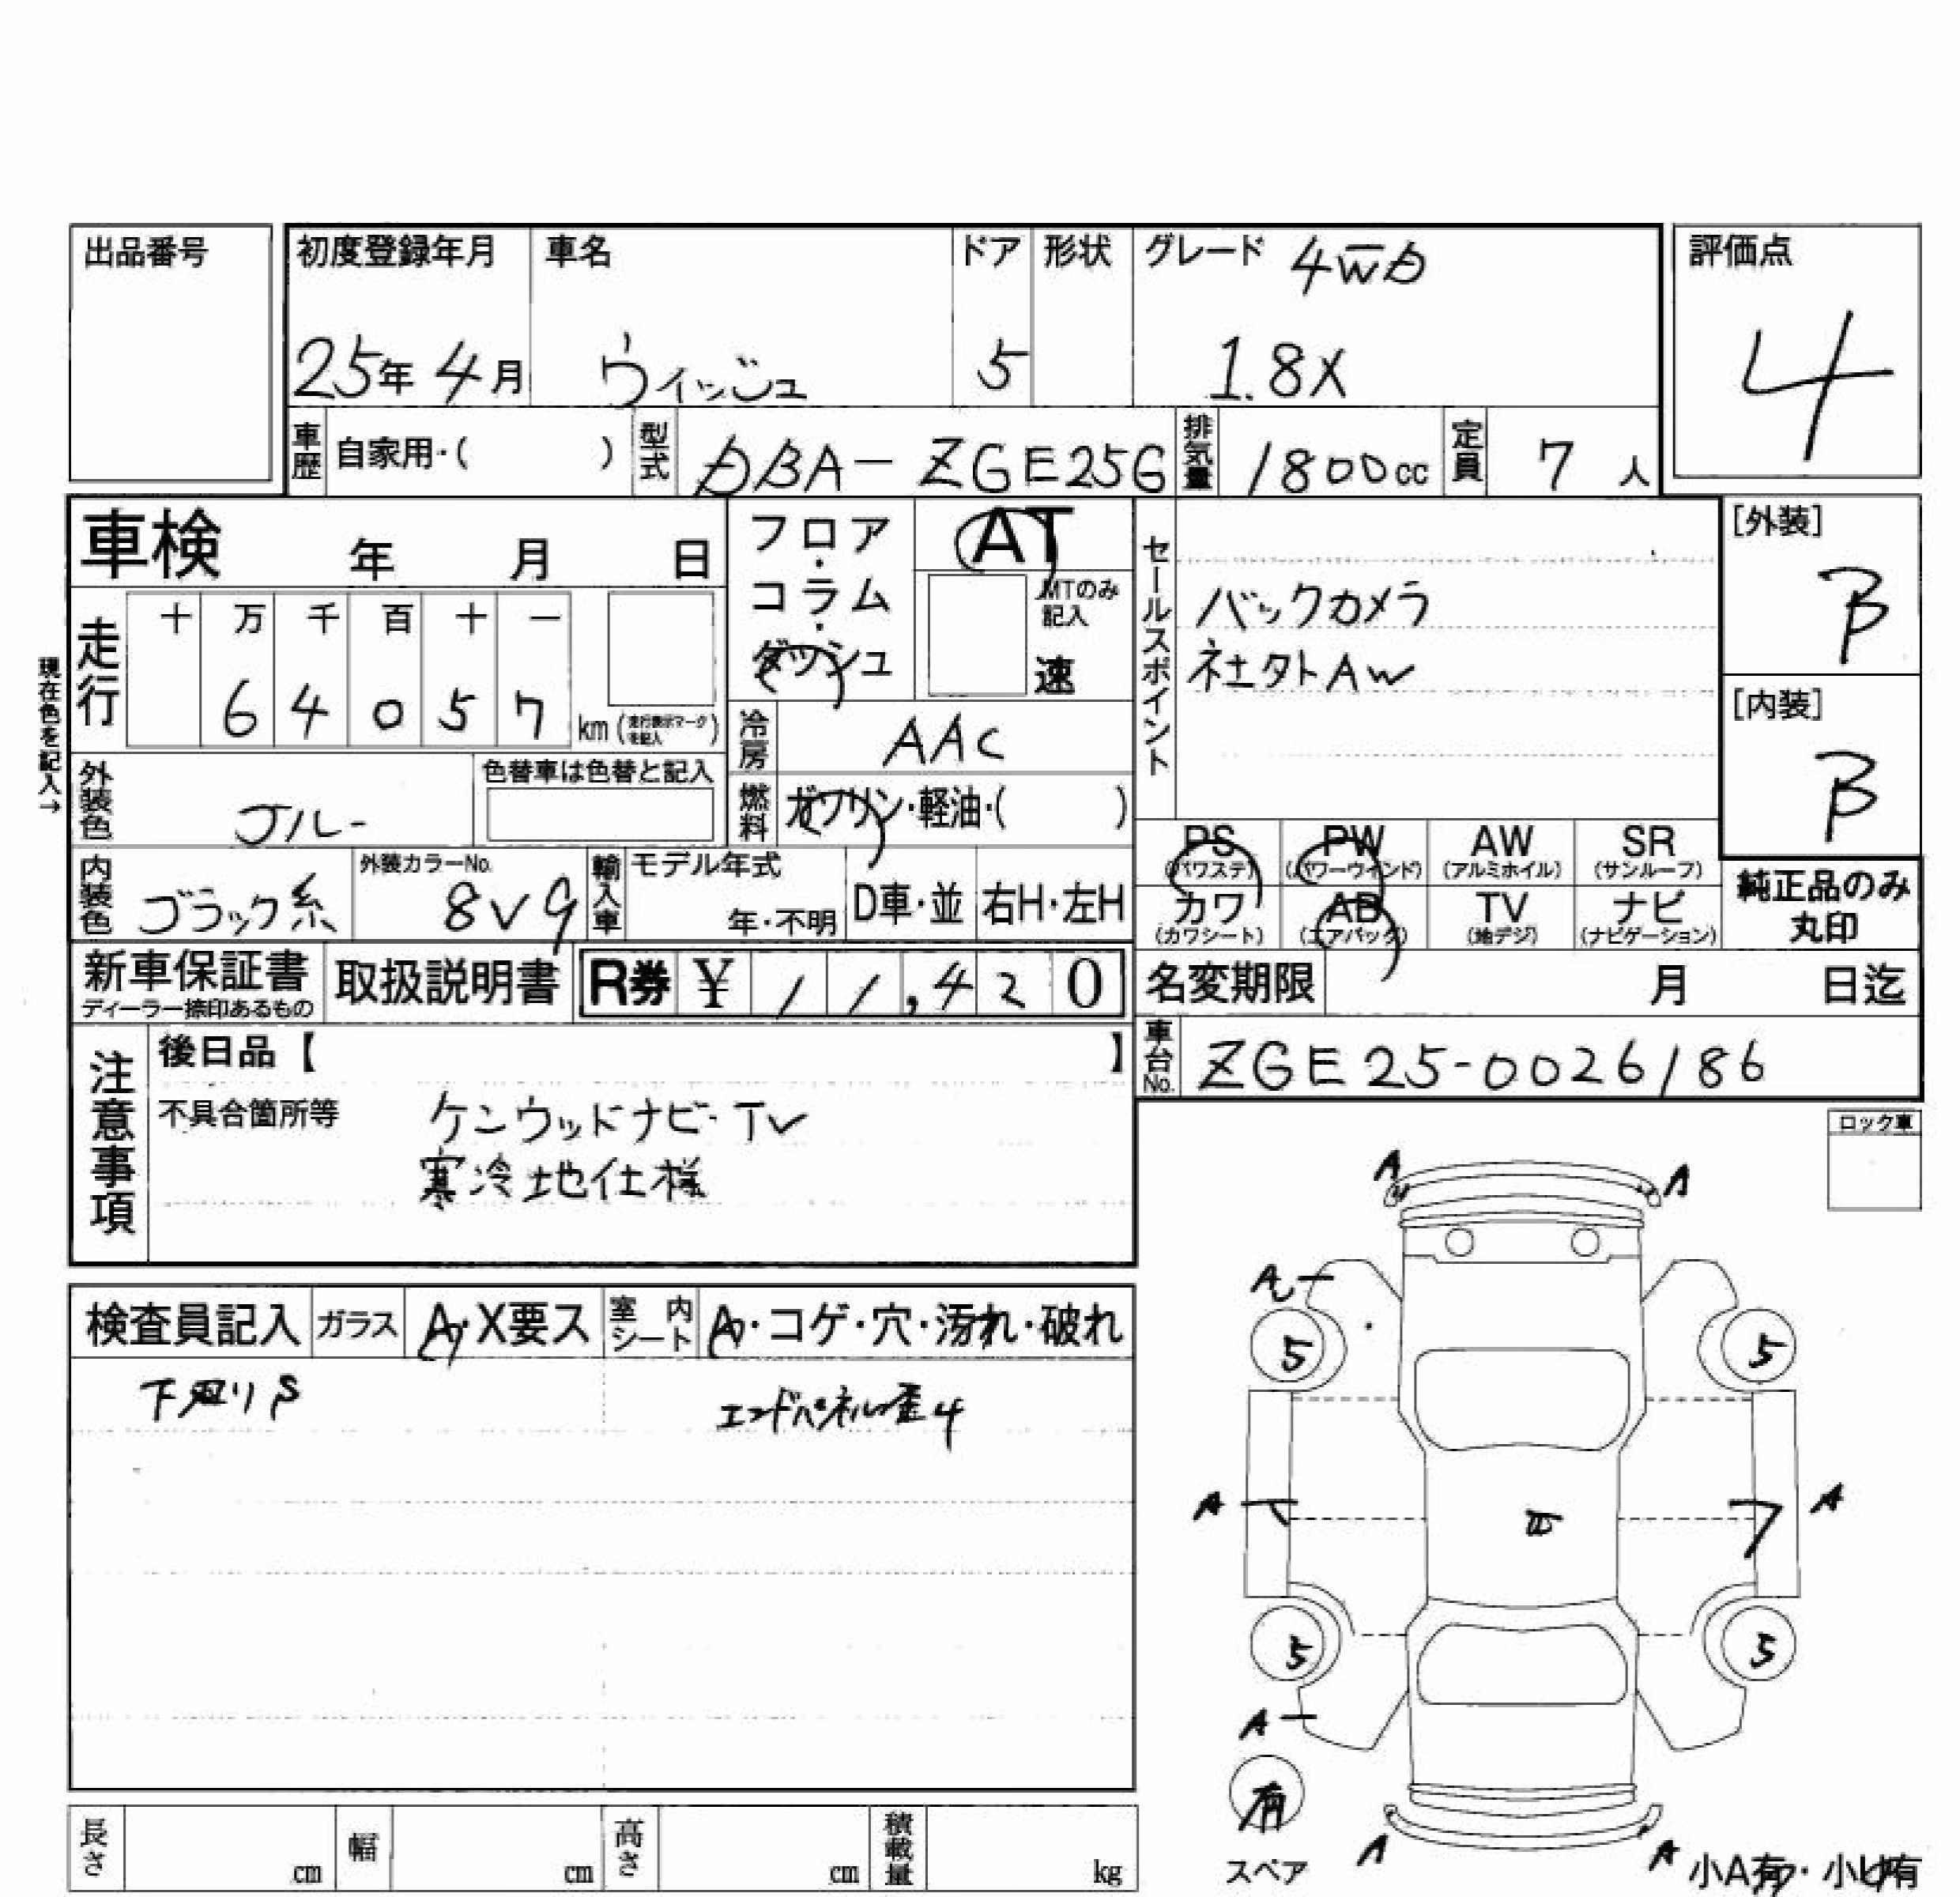 出品番号
初度登録年月 車名 ドア 形状 グレード 4WD 評価点
25年 4月 ウィッシュ 5 1.8X 4
車歴 自家用・( ) 型式 DBA-ZGE25G 排気量 1800cc 定員 7人
車検 年 月 日
フロア・コラム・ダッシュ
AT
MTのみ記入
速
セールスポイント
バックカメラ
社外AW
[外装]
B
[内装]
B
現在色を記入→
走行 十 万 千 百 十 一
6 4 0 5 7 km (走行表示マークを記入)
冷房 AAC
燃料 ガソリン・軽油・( )
外装色 ブルー 色替車は色替と記入
内装色 ブラック系 外装カラーNo. 8V9 輸入車 モデル年式 年・不明 D車・並 右H・左H
PS (パワステ) PW (パワーウィンド) AW (アルミホイル) SR (サンルーフ)
カワ (カワシート) AB (エアバッグ) TV (地デジ) ナビ (ナビゲーション)
純正品のみ
丸印
新車保証書 ディーラー捺印あるもの 取扱説明書 R券 ¥ 11,420
名変期限 月 日迄
車台No. ZGE25-0026186
注意事項
後日品【 】
不具合箇所等 ケンウッドナビ・TV
寒冷地仕様
ロック車
検査員記入 ガラス A・X要ス 室内シート A・コゲ・穴・汚れ・破れ
下廻りS エンドパネル歪4
A A
A
5 5
A A
5 5
A
有
スペア
A A
小A有・小U有
長さ cm 幅 cm 高さ cm 積載量 kg